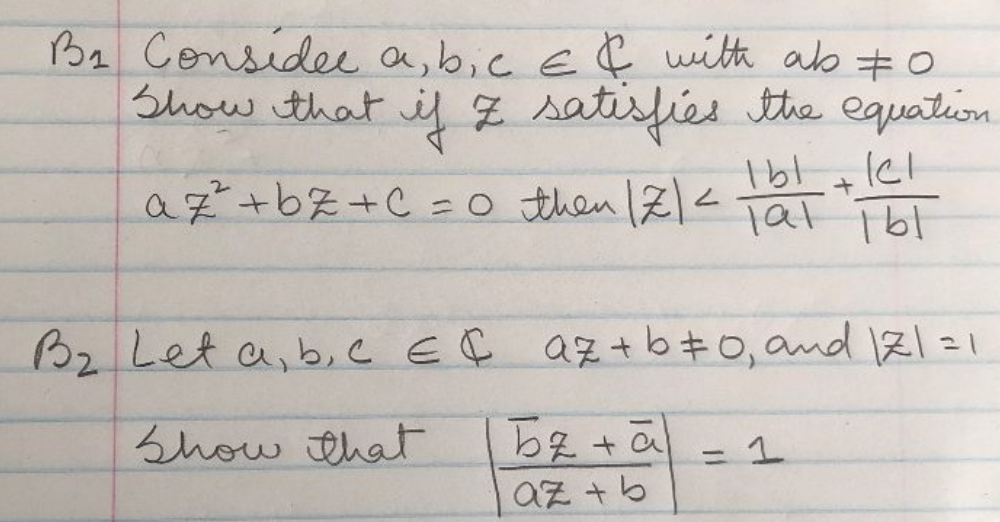 B1 Consider a, b, c ∈ ₵ with ab ≠ 0
Show that if Z satisfies the equation
aZ² + bZ + c = 0 then |Z| < |b|/|a| + |c|/|b|
B2 Let a, b, c ∈ ₵ az + b ≠ 0, and |Z| = 1
Show that |(b̅z + a̅)/(az + b)| = 1